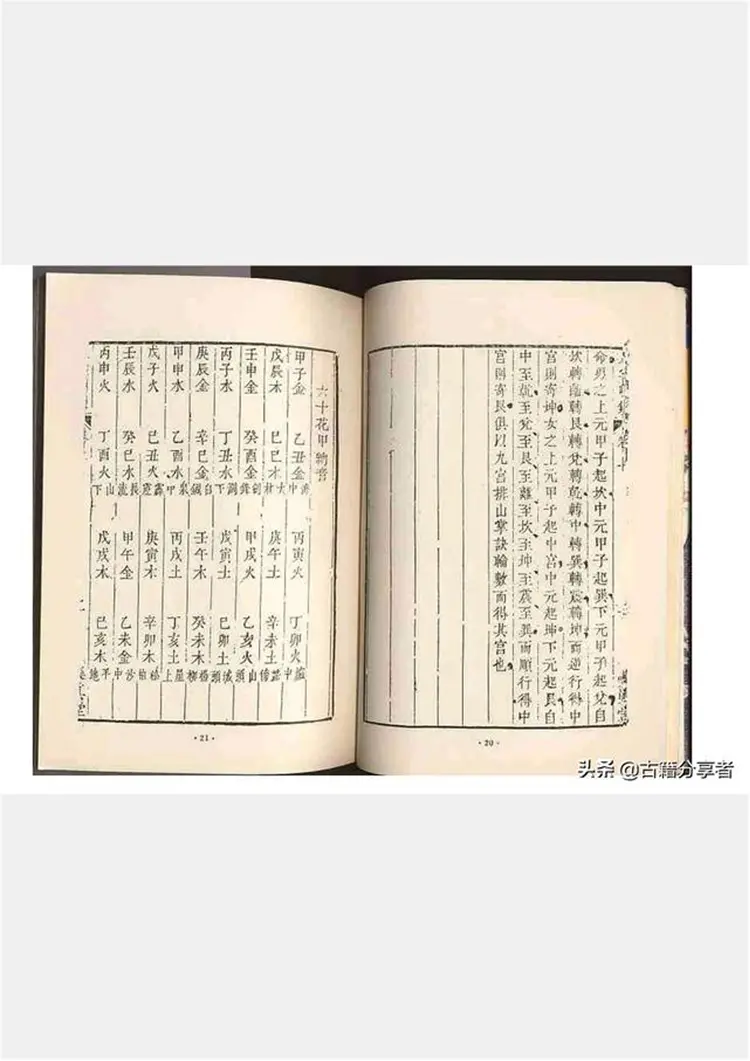 命男之上元甲子起坎中元甲子起巽下元甲子起兌自
坎轉離轉艮轉兌轉乾轉中轉巽轉震轉坤而逆行得中
宮則寄坤女之上元甲子起中宮中元起坤下元起艮自
中至乾至兌至艮至離至坎至坤至震至巽而順行得中
宮則寄艮俱以九宮排山掌訣輪數而得其宮也
·20·
六十花甲納音
甲子金 乙丑金 海中 丙寅火 丁卯火 爐中
戊辰木 己巳木 大林 庚午土 辛未土 路傍
壬申金 癸酉金 劍鋒 甲戌火 乙亥火 山頭
丙子水 丁丑水 澗下 戊寅土 己卯土 城頭
庚辰金 辛巳金 白鑞 壬午木 癸未木 楊柳
甲申水 乙酉水 泉中 丙戌土 丁亥土 屋上
戊子火 己丑火 霹靂 庚寅木 辛卯木 松柏
壬辰水 癸巳水 長流 甲午金 乙未金 沙中
丙申火 丁酉火 山下 戊戌木 己亥木 平地
·21·
头条 @古籍分享者